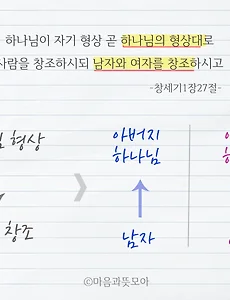 하나님이 자기 형상 곧 하나님의 형상대로
사람을 창조하시되 남자와 여자를 창조하시고
-창세기1장27절-
형상
창조
》
아버지
하나님
↑
남자
©마음과뜻모아